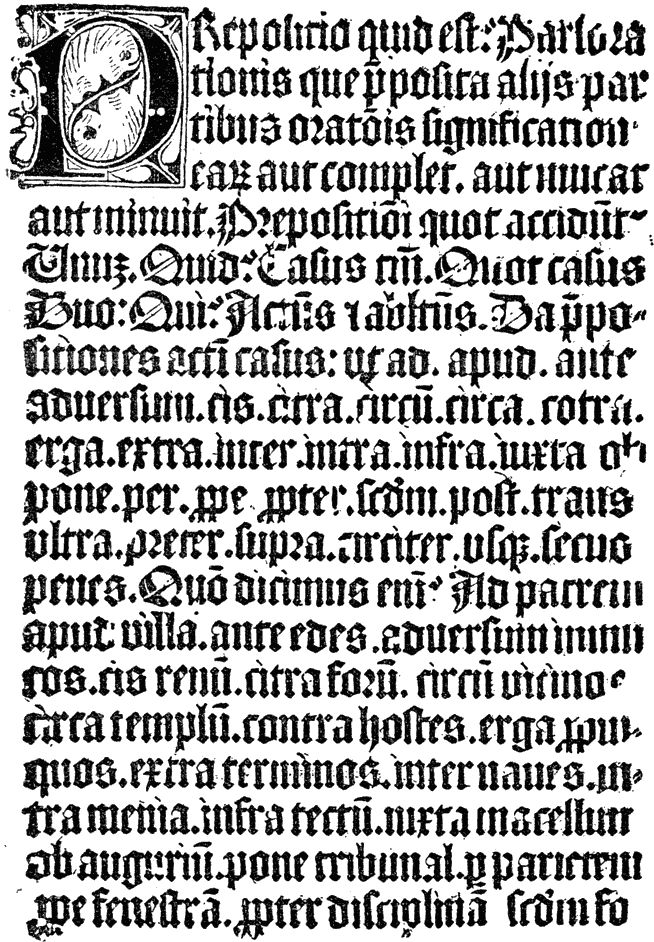 PRepositio quid est? Pars ora
tionis que p̄posita alijs par
tibus oratōis signification
eaꝝ aut complet. aut mutat
aut minuit. Prepositiōi quot accidūt
Unuꝫ. Quid? Casus tm̄. Quot casus
Duo: Qui? Actūs ⁊ abltūs. Da p̄po-
sitiones acti casus: vt ad. apud. ante
aduersum. cis. citra. circū. circa. cotra.
erga. extra. inter. intra. infra. iuxta ob
pone. per. ꝓpe ꝓpter. scdm̄. post. trans
vltra. preter. supra. circiter. vsqꝫ. secus
penes. Quō dicimus enī? Ad patrem
apud villā. ante edes. aduersum inimi
cos. cis renū. citra forū. circū vicinos
circa templū. contra hostes. erga ꝓpin-
quos. extra terminos. inter naues. in-
tra menia. infra tectū. iuxta macellum
ob auguriū. pone tribunal. ꝑ parietem
ꝓpe fenestrā. ꝓpter disciplinā scdm̄ fo